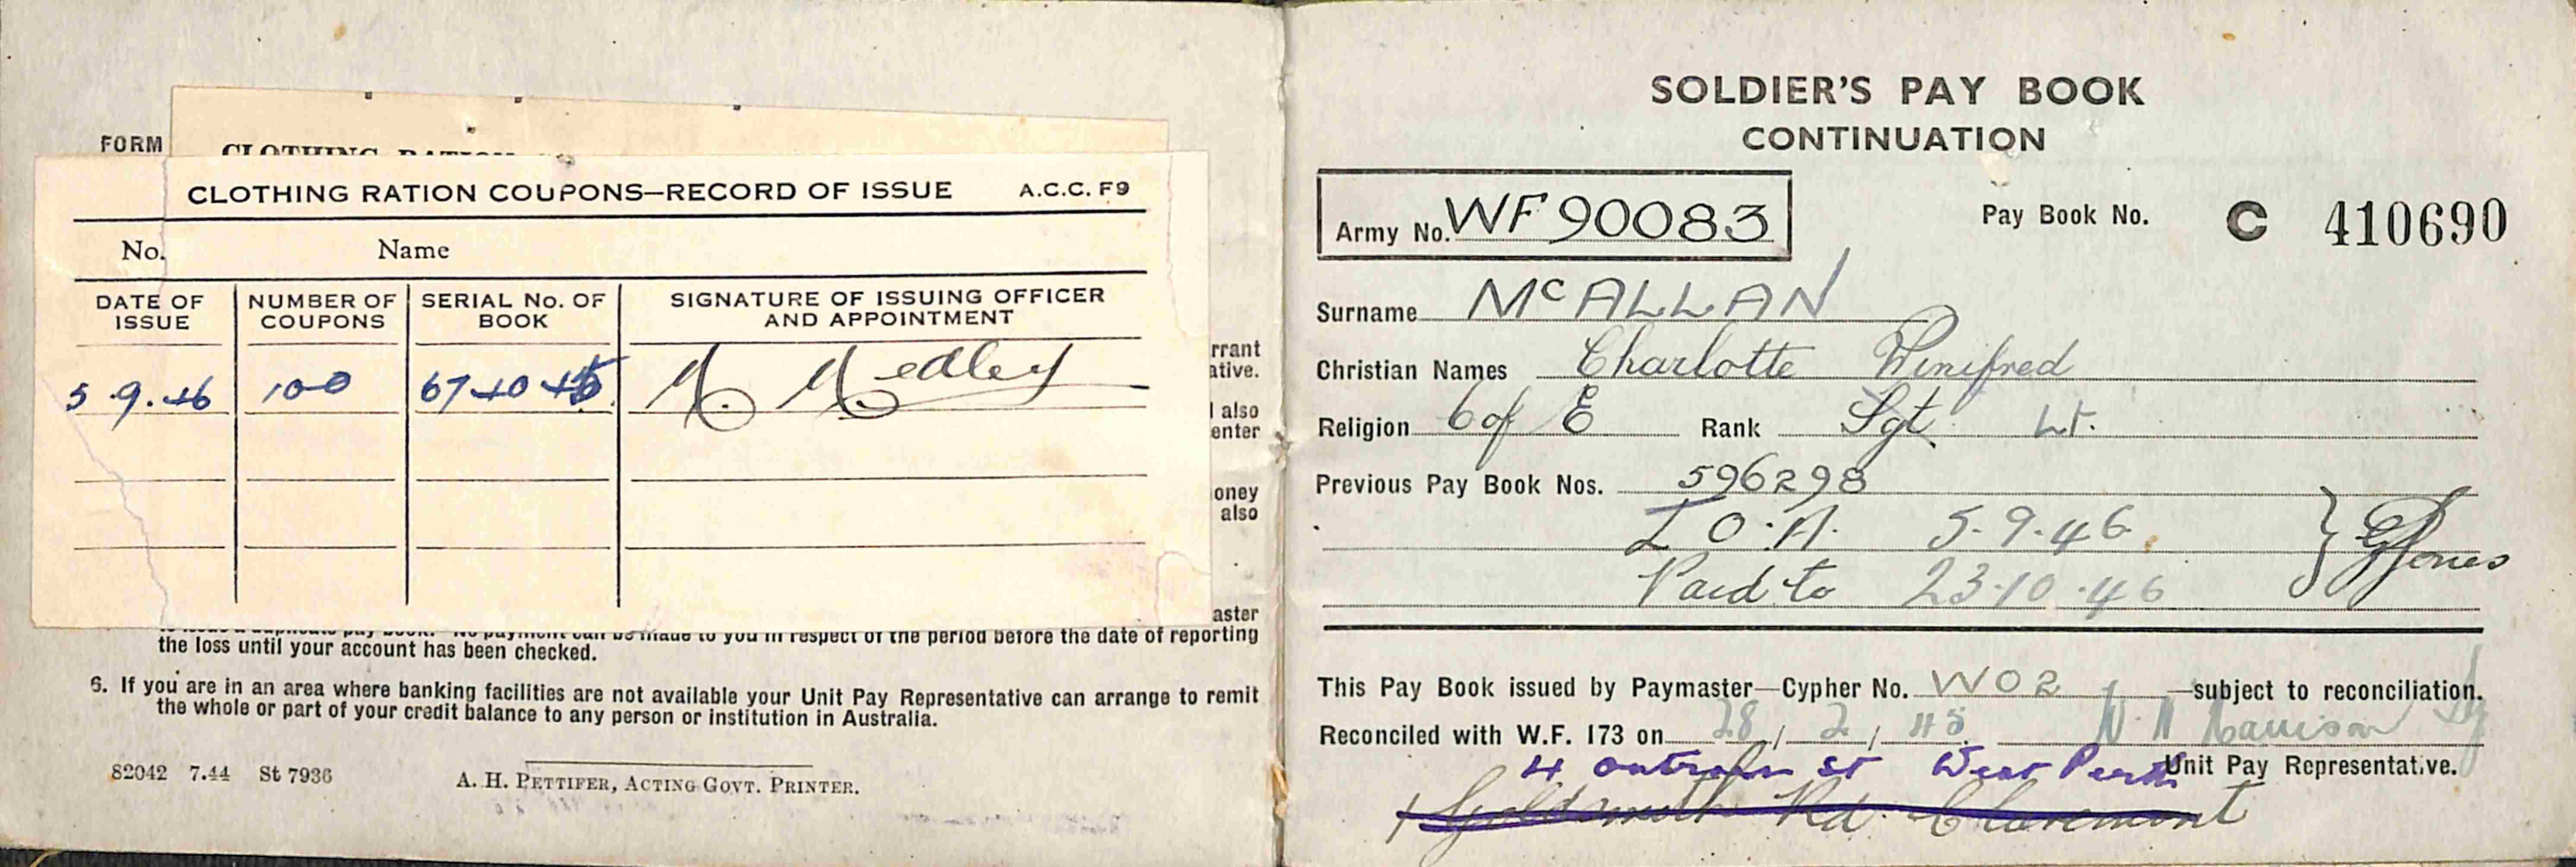 FORM
CLOTHING RATION
CLOTHING RATION COUPONS—RECORD OF ISSUE A.C.C. F9
No. Name
DATE OF ISSUE NUMBER OF COUPONS SERIAL No. OF BOOK SIGNATURE OF ISSUING OFFICER AND APPOINTMENT
5.9.46 100 Medley
rrant
ative.
also
enter
oney
also
aster
to issue a duplicate pay book. No payment can be made to you in respect of the period before the date of reporting
the loss until your account has been checked.
6. If you are in an area where banking facilities are not available your Unit Pay Representative can arrange to remit
the whole or part of your credit balance to any person or institution in Australia.
82042 7.44 St 7936
A. H. PETTIFER, ACTING GOVT. PRINTER.
SOLDIER'S PAY BOOK
CONTINUATION
Army No. WF 90083
Pay Book No. C 410690
Surname McALLAN
Christian Names Charlotte Winifred
Religion C of E Rank Sgt Lt.
Previous Pay Book Nos. 596298
L.O.A. 5.9.46
Paid to 23.10.46 Jones
This Pay Book issued by Paymaster—Cypher No. WO2 —subject to reconciliation.
Reconciled with W.F. 173 on 28 / 2 / 45 Harrison
Unit Pay Representative.
4 Outram St West Perth
Goldsmith Rd. Claremont